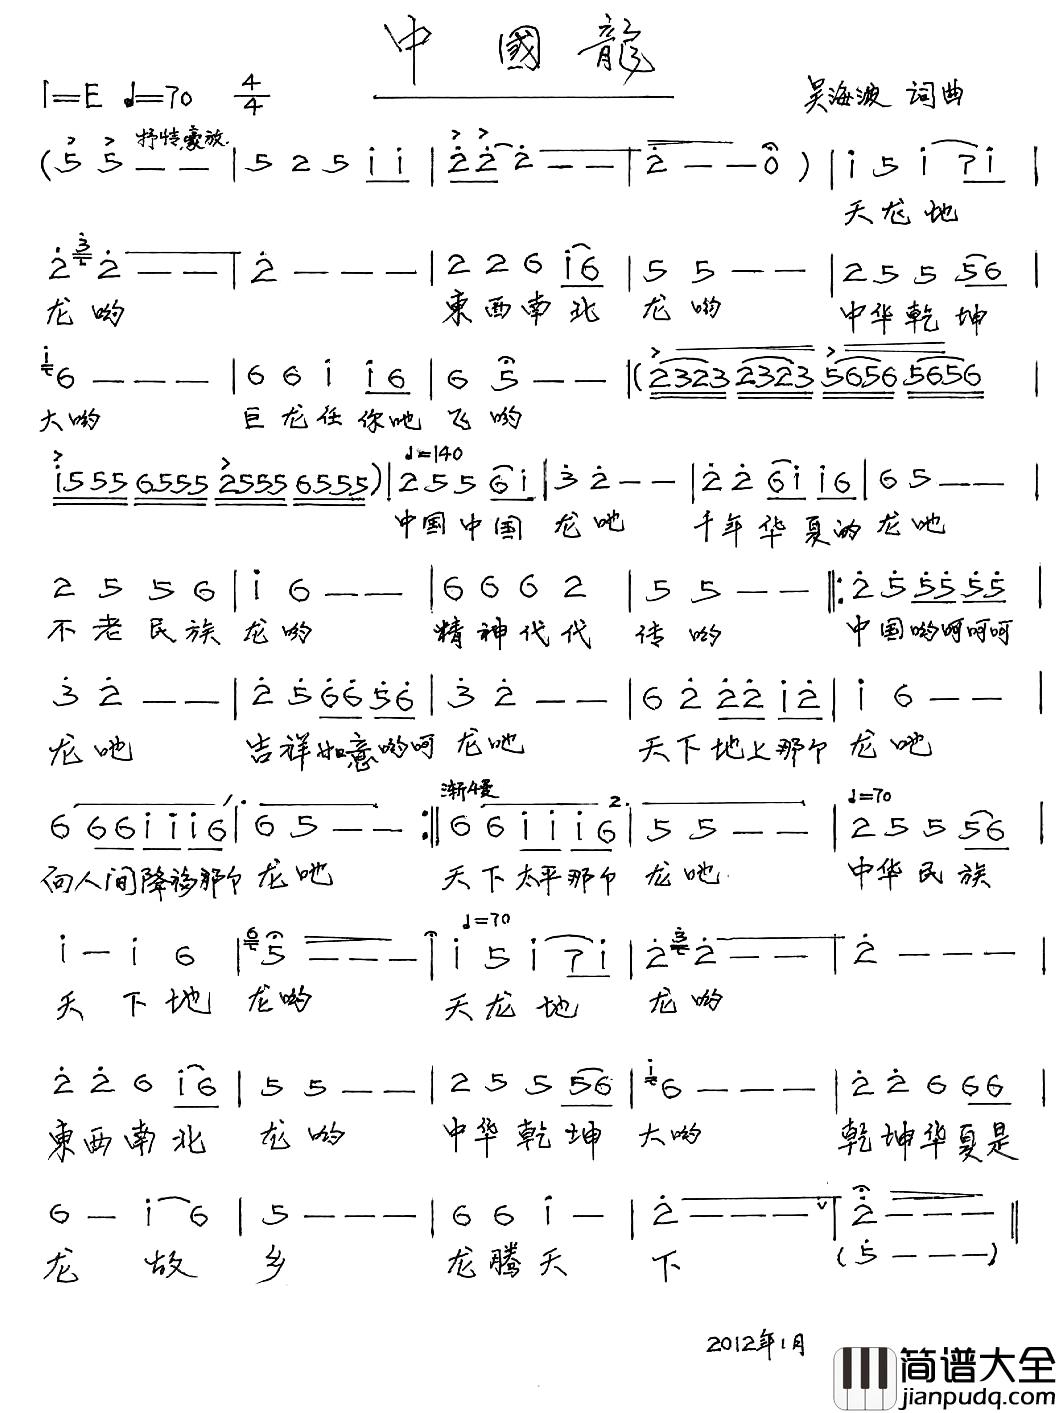 中國龍
1=E ♩=70 4/4
吴海波 词曲
抒情、豪放
( 5 5 - - | 5 2 5 i i | 2 2 2 - - | 2 - - 0 ) | i 5 i 7 i |
天龙地
2 3 2 - - | 2 - - - | 2 2 6 i 6 | 5 5 - - | 2 5 5 5 6 |
龙哟 東西南北 龙哟 中华乾坤
i 6 - - - | 6 6 i i 6 | 6 5 - - |( 2323 2323 5656 5656
大哟 巨龙任你吔飞哟
♩=140
i555 6555 2555 6555 )| 2 5 5 6 i | 3 2 - - | 2 2 6 i i 6 | 6 5 - - |
中国中国 龙吔 千年华夏的龙吔
2 5 5 6 | i 6 - - | 6 6 6 2 | 5 5 - - |: 2 5 5 5 5 5 |
不老民族 龙哟 精神代代 传哟 中国哟呵呵呵
3 2 - - | 2 5 6 6 5 6 | 3 2 - - | 6 2 2 2 i 2 | i 6 - - |
龙吔 吉祥如意哟呵 龙吔 天下地上那个 龙吔
渐慢 ♩=70
6 6 6 i i i 6 | 6 5 - - :| 6 6 i i i 6 | 5 5 - - | 2 5 5 5 6 |
向人间降福那个 龙吔 天下太平那个 龙吔 中华民族
♩=70
i - i 6 | 6 5 - - - | i 5 i 7 i | 2 3 2 - - | 2 - - - |
天下地 龙哟 天龙地 龙哟
2 2 6 i 6 | 5 5 - - | 2 5 5 5 6 | i 6 - - - | 2 2 6 6 6 |
東西南北 龙哟 中华乾坤 大哟 乾坤华夏是
6 - i 6 | 5 - - - | 6 6 i - | 2 - - - | 2 - - - ||
龙故乡 龙腾天下 ( 5 - - - )
2012年1月
简谱大全
jianpudq.com